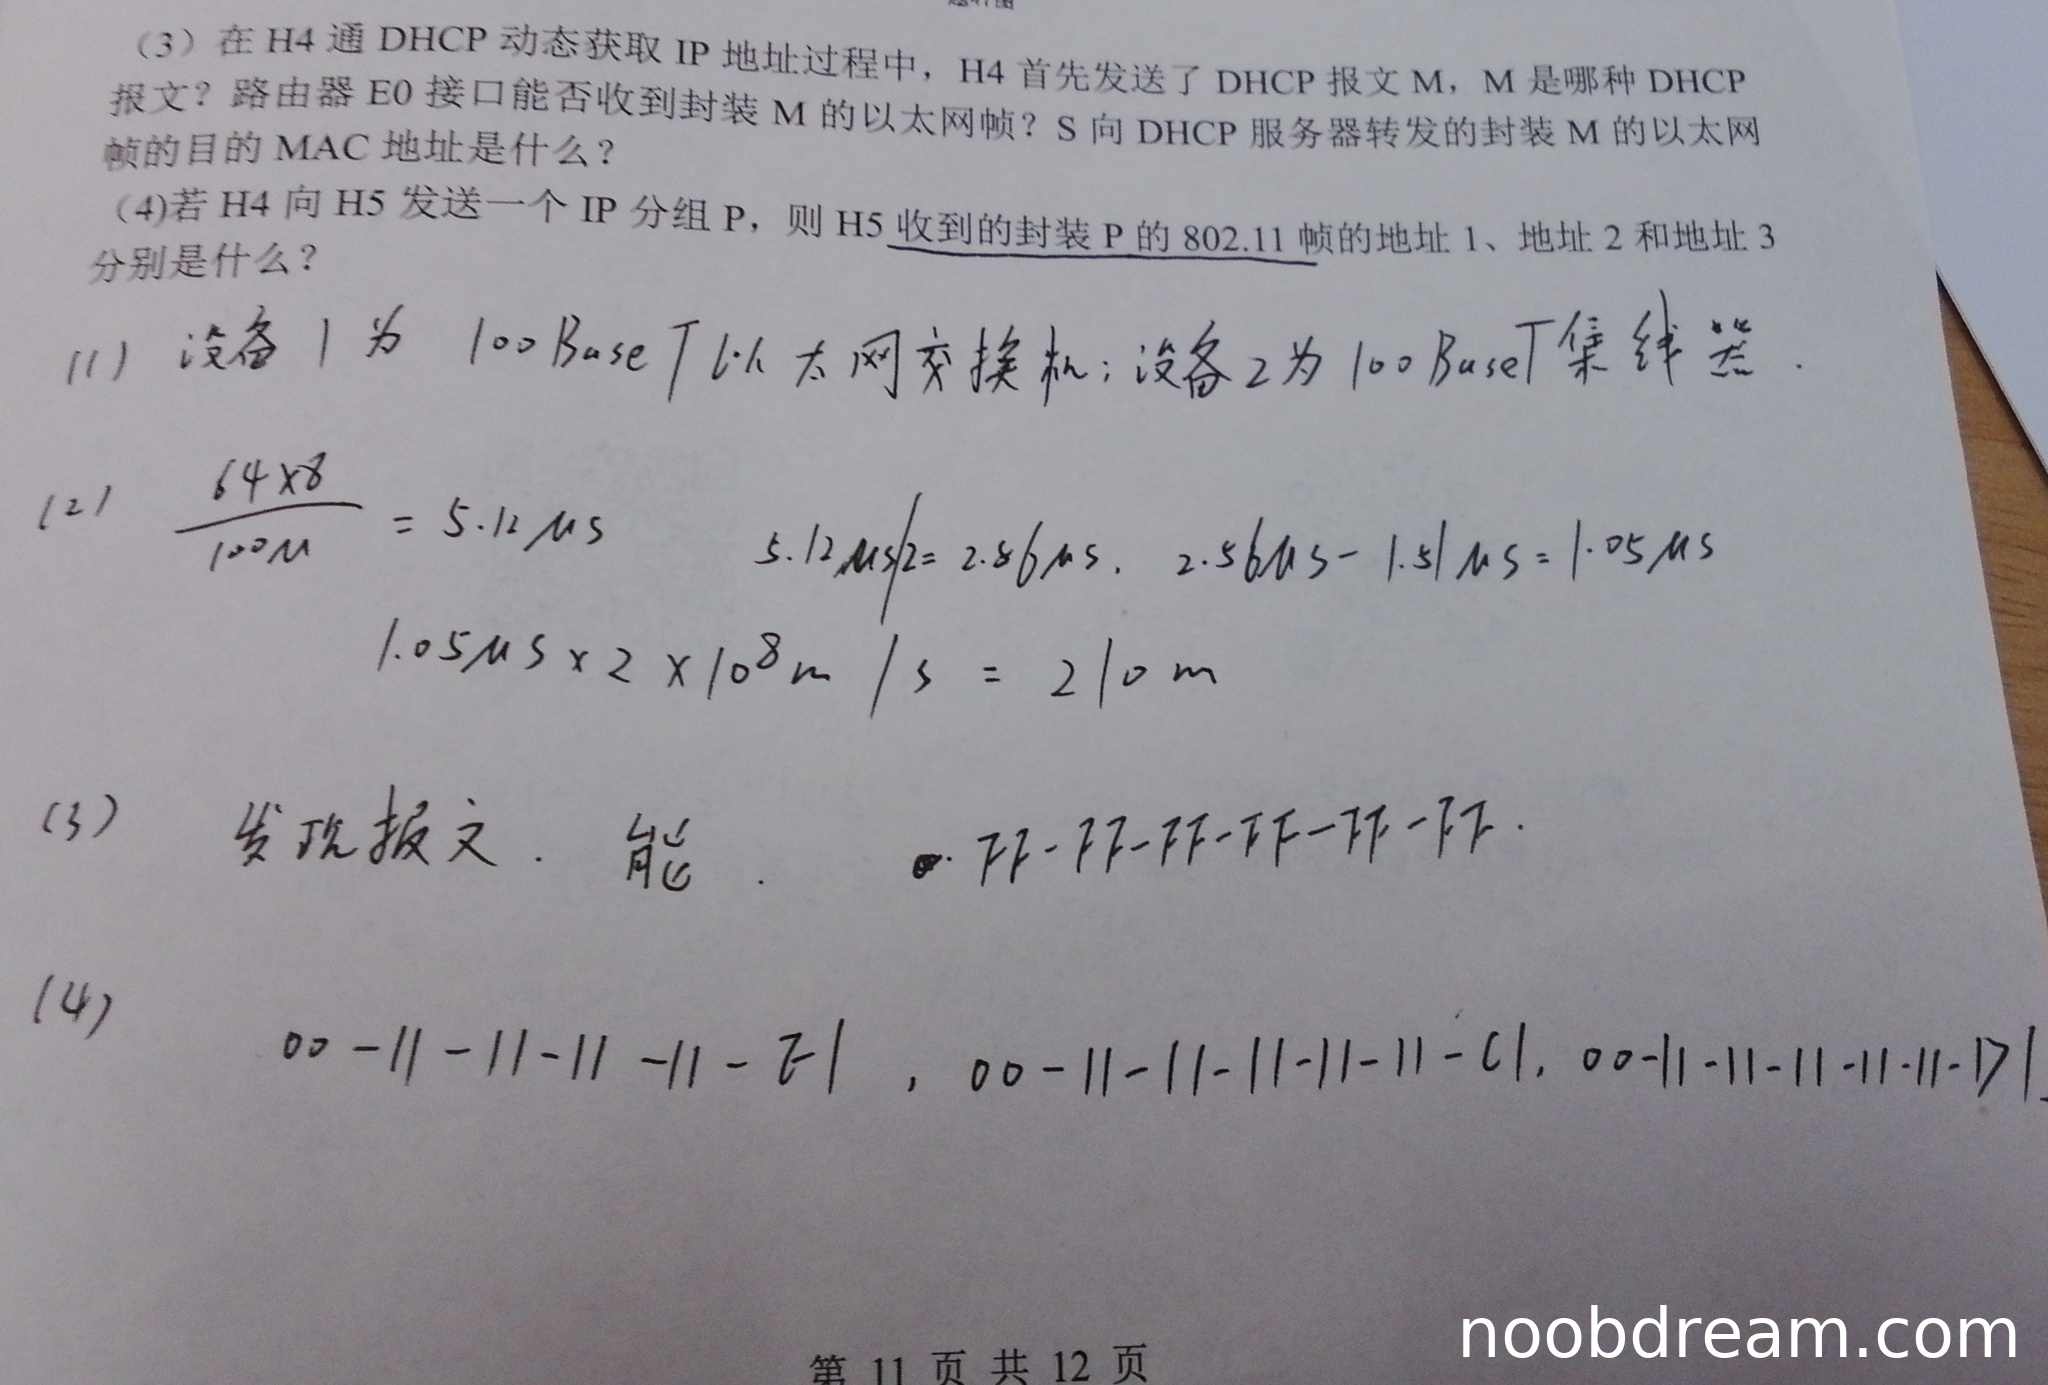 （3）在 H4 通 DHCP 动态获取 IP 地址过程中，H4 首先发送了 DHCP 报文 M，M 是哪种 DHCP
报文？路由器 E0 接口能否收到封装 M 的以太网帧？S 向 DHCP 服务器转发的封装 M 的以太网
帧的目的 MAC 地址是什么？
（4)若 H4 向 H5 发送一个 IP 分组 P，则 H5 收到的封装 P 的 802.11 帧的地址 1、地址 2 和地址 3
分别是什么？
(1) 设备1为 100BaseT以太网交换机；设备2为100BaseT集线器.
(2) 64×8/100M = 5.12μs 5.12μs/2=2.56μs. 2.56μs-1.51μs=1.05μs
1.05μs×2×10⁸m/s = 210m
(3) 发现报文. 能. FF-FF-FF-FF-FF-FF.
(4) 00-11-11-11-11-E1, 00-11-11-11-11-11-C1, 00-11-11-11-11-11-D1
第 11 页 共 12 页
noobdream.com